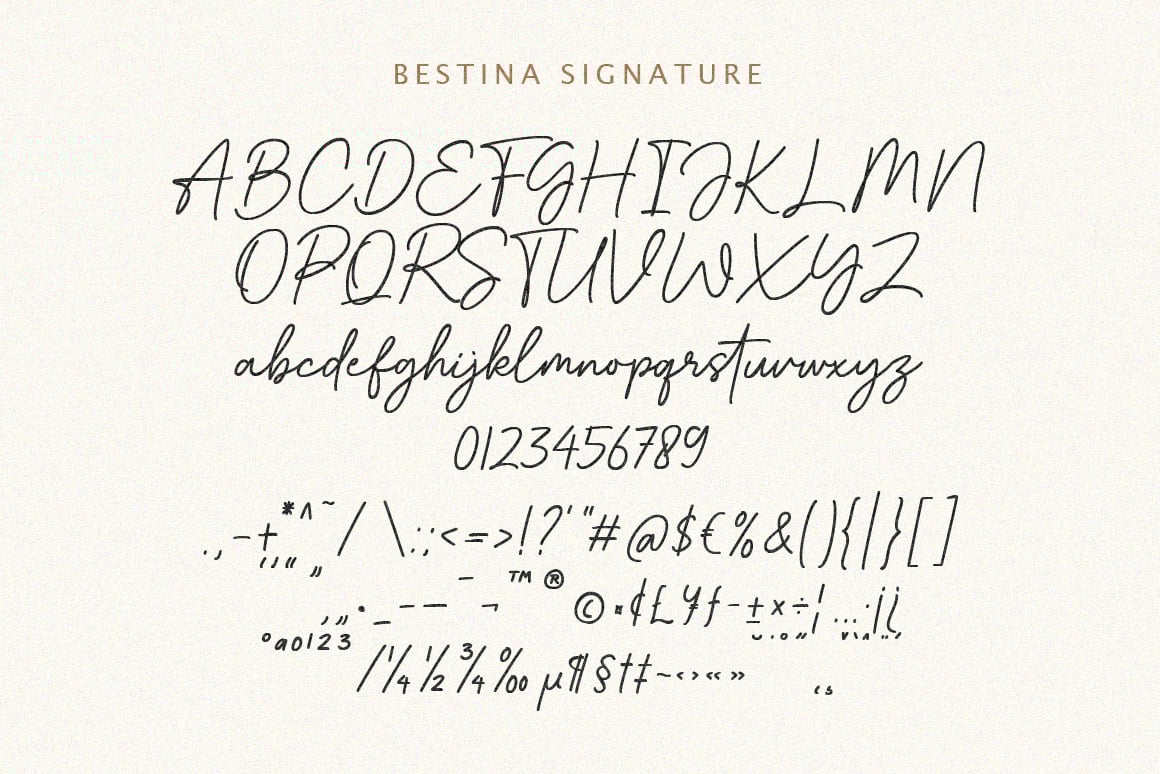 BESTINA SIGNATURE
ABCDEFGHIJKLMN
OPQRSTUVWXYZ
abcdefghijklmnopqrstuvwxyz
0123456789
.,-+*^~/\:;<=>!?'"#@$€%&(){|}[]
‘’“„ – ™®
‚„•_–— ¬ ©¤¢£¥ƒ-±×÷¦…·¡¿
ºao123 ⁄¼½¾‰µ¶§†‡~‹›«»